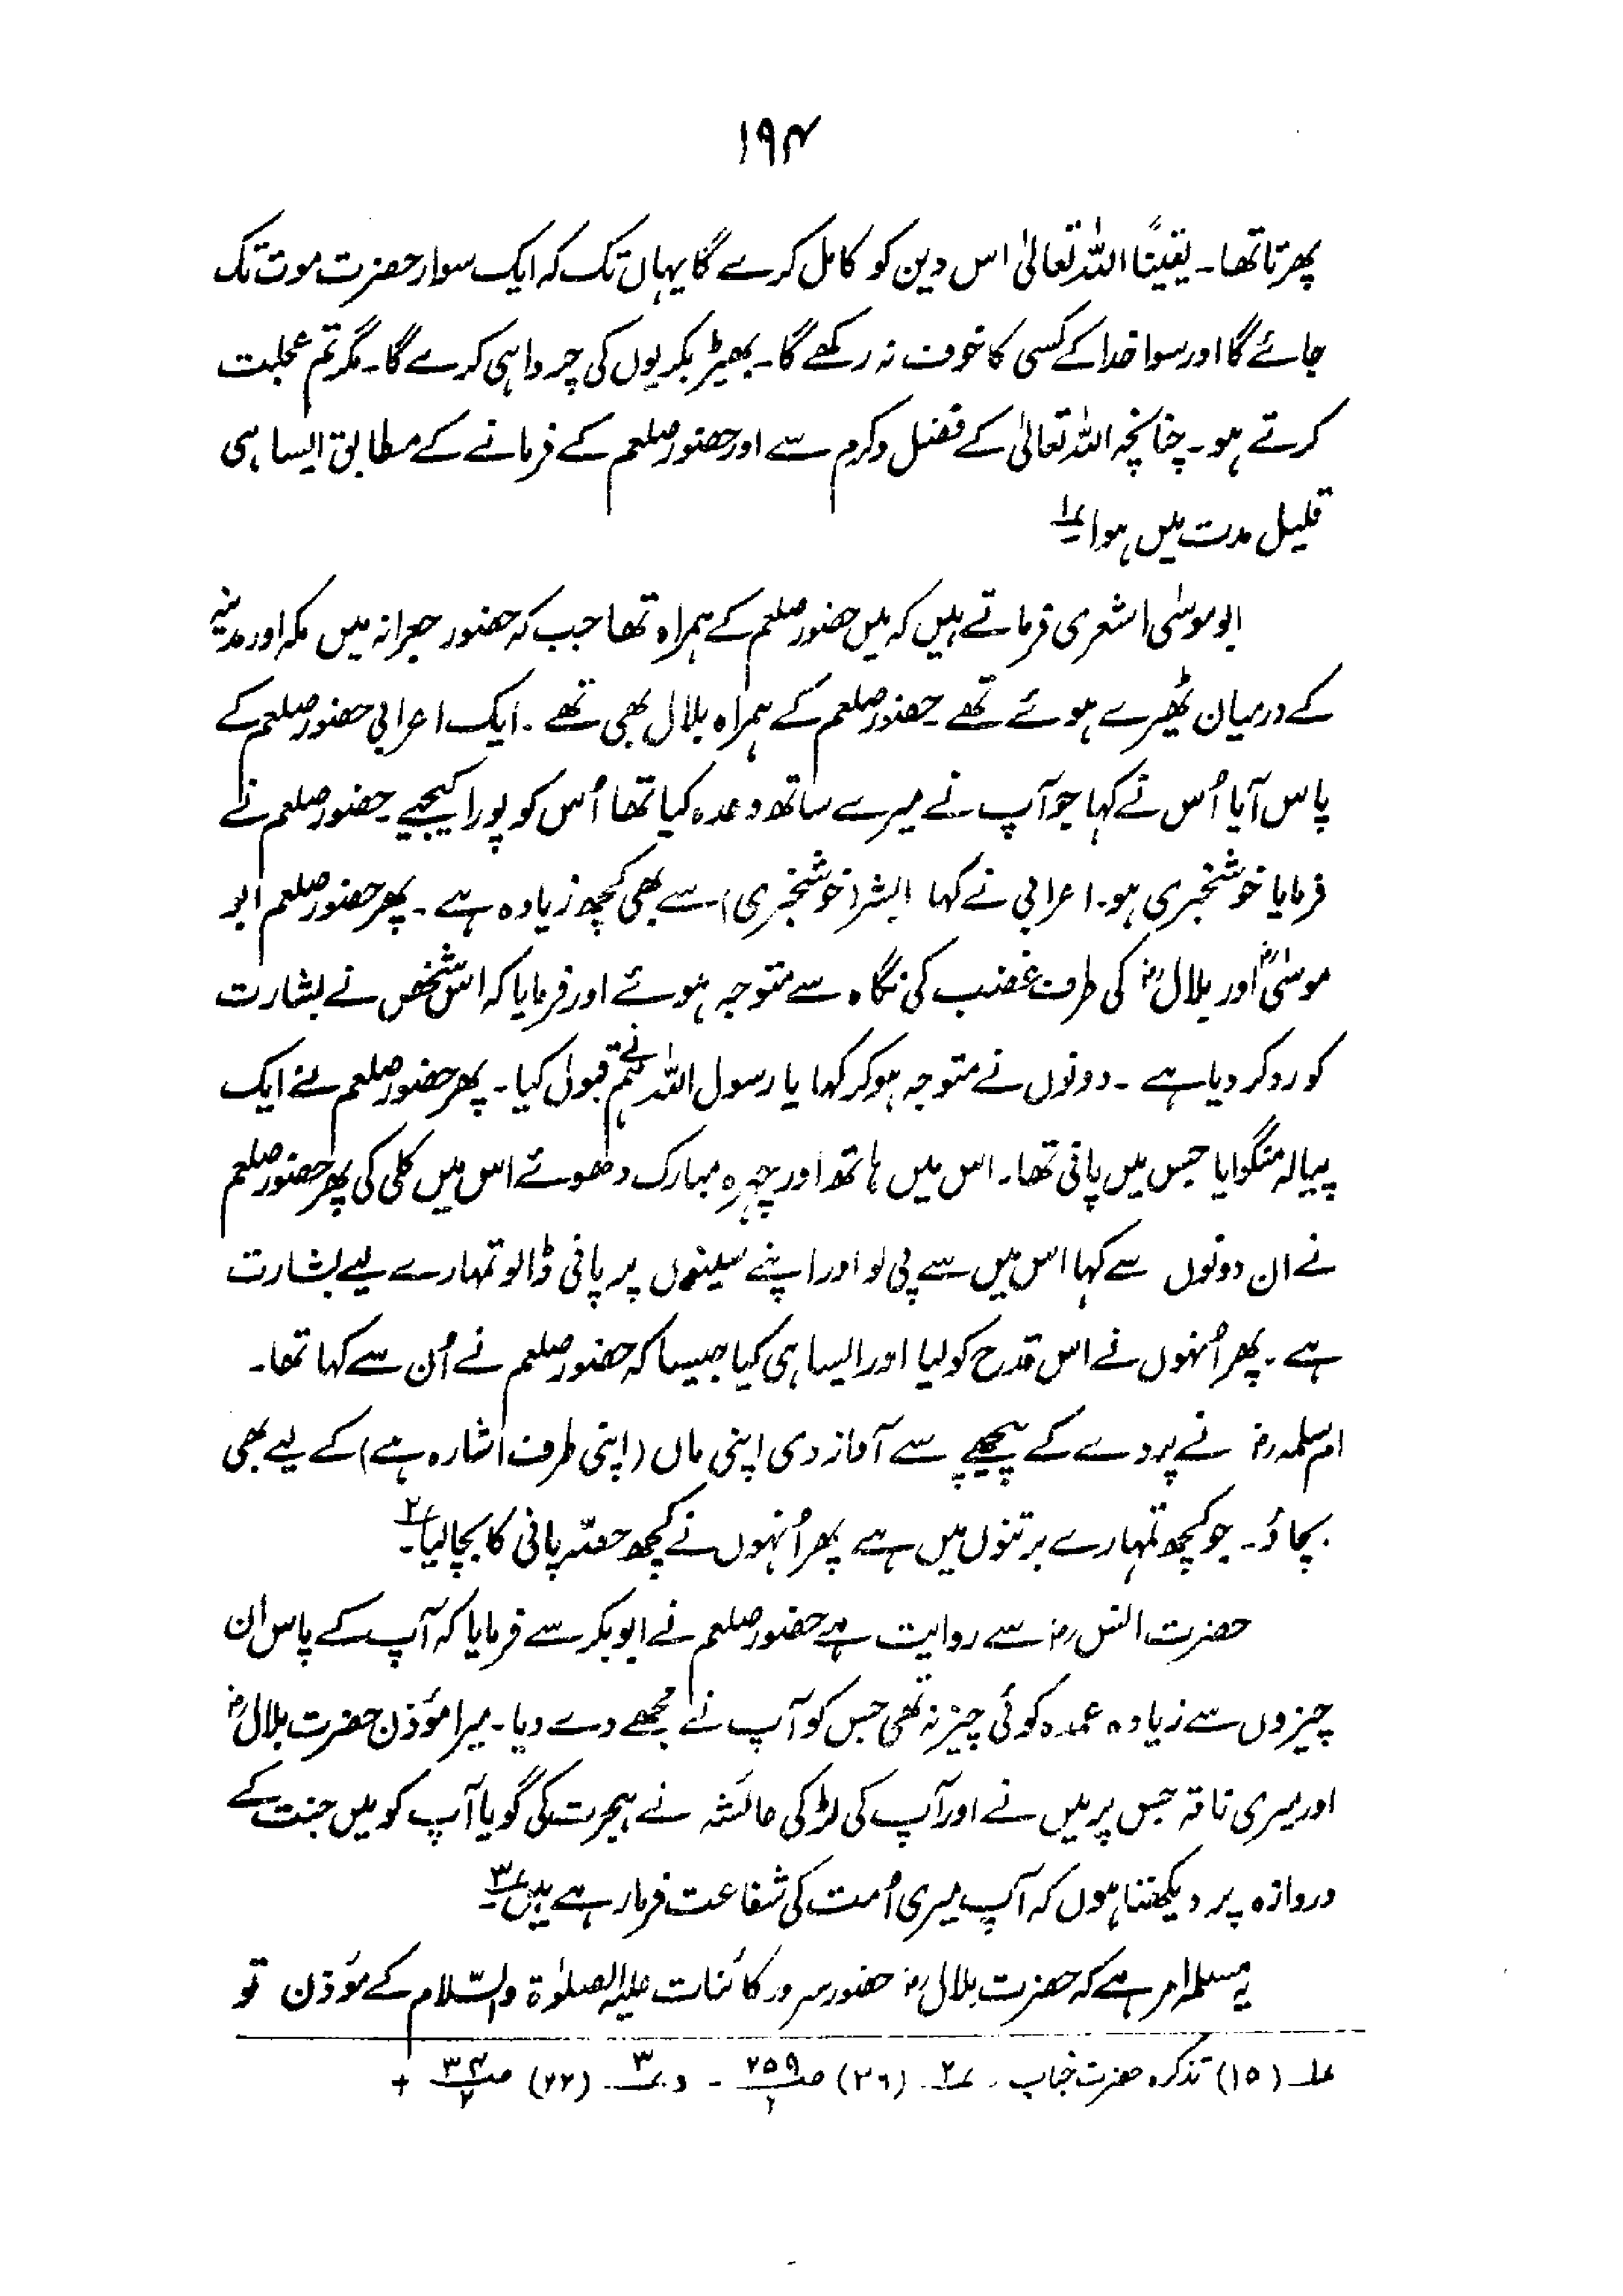 ۱۹۴
پھرتا تھا۔ یقیناً اللہ تعالیٰ اس دین کو کامل کرے گا یہاں تک کہ ایک سوار حضرت موت تک
جائے گا اور سوا خدا کے کسی کا خوف نہ رکھے گا۔ بھیڑ بکریوں کی چرواہی کرے گا۔ مگر تم عجلت
کرتے ہو۔ چنانچہ اللہ تعالیٰ کے فضل و کرم سے اور حضور صلعم کے فرمانے کے مطابق ایسا ہی
قلیل مدت میں ہوا ؎۱
ابو موسیٰ اشعری فرماتے ہیں کہ میں حضور صلعم کے ہمراہ تھا جب کہ حضور جعرانہ میں مکہ اور مدینہ
کے درمیان ٹھیرے ہوئے تھے۔ حضور صلعم کے ہمراہ بلال بھی تھے۔ ایک اعرابی حضور صلعم کے
پاس آیا اُس نے کہا جو آپ نے میرے ساتھ وعدہ کیا تھا اُس کو پورا کیجیے۔ حضور صلعم نے
فرمایا خوشخبری ہو۔ اعرابی نے کہا ابشر (خوشخبری) سے بھی کچھ زیادہ ہے۔ پھر حضور صلعم ابو
موسیٰؓ اور بلالؓ کی طرف غضب کی نگاہ سے متوجہ ہوئے اور فرمایا کہ اس شخص نے بشارت
کو رد کر دیا ہے۔ دونوں نے متوجہ ہو کر کہا یا رسول اللہ ہم نے قبول کیا۔ پھر حضور صلعم نے ایک
پیالہ منگوایا جس میں پانی تھا۔ اس میں ہاتھ اور چہرہ مبارک دھوئے اس میں کلی کی پھر حضور صلعم
نے ان دونوں سے کہا اس میں سے پی لو اور اپنے سینوں پر پانی ڈالو تمہارے لیے بشارت
ہے۔ پھر اُنہوں نے اس قدح کو لیا اور ایسا ہی کیا جیسا کہ حضور صلعم نے اُن سے کہا تھا۔
ام سلمہ رض نے پردے کے پیچھے سے آواز دی اپنی ماں (اپنی طرف اشارہ ہے) کے لیے بھی
بچاؤ۔ جو کچھ تمہارے برتنوں میں ہے پھر اُنہوں نے کچھ حصّہ پانی کا بچا لیا ؎۲۔
حضرت انس رض سے روایت ہے حضور صلعم نے ابوبکر سے فرمایا کہ آپ کے پاس ان
چیزوں سے زیادہ عمدہ کوئی چیز نہ تھی جس کو آپ نے مجھے دے دیا۔ میرا مؤذن حضرت بلالؓ
اور میری ناقہ جس پر میں نے اور آپ کی لڑکی عائشہ نے ہجرت کی گویا آپ کو میں جنت کے
دروازہ پر دیکھتا ہوں کہ آپ میری اُمت کی شفاعت فرما رہے ہیں ؎۳۔
یہ مسلمہ امر ہے کہ حضرت بلال رض حضور سرور کائنات علیہ الصلوٰۃ والسّلام کے مؤذن تو
؎۱ (۱۵) تذکرہ حضرت خباب۔ ؎۲ (۲۶) ص ۲۵۹/۱ ۔ و ؎۳ (۲۲) ص ۳۴/۲ +